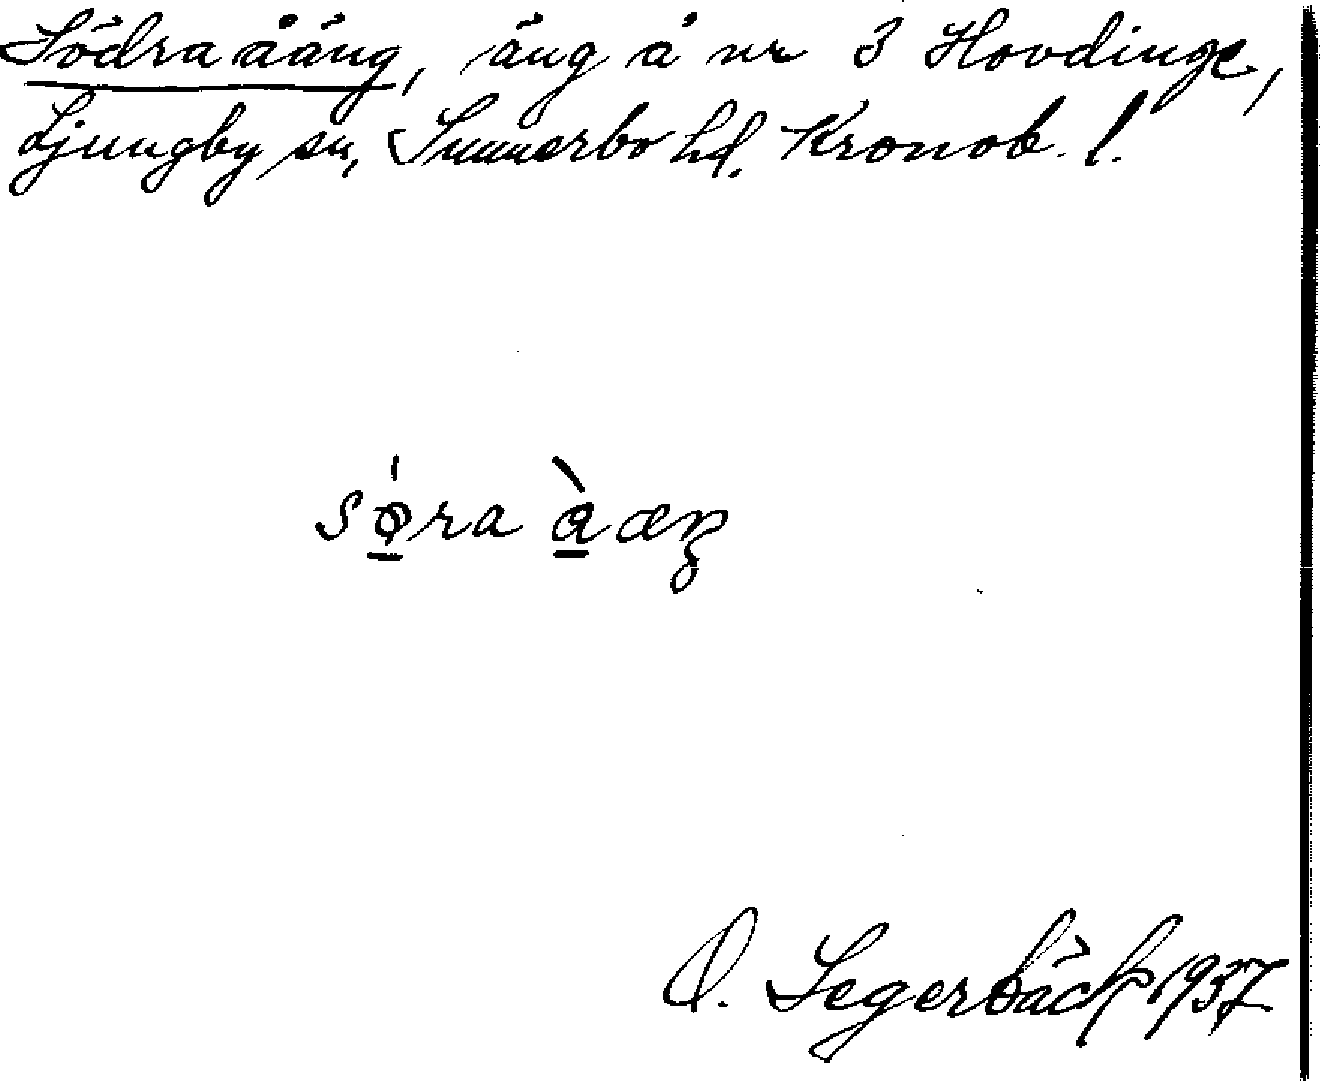 Södra åäng, äng å nr 3 Hovdinge,
Ljungby sn, Sunnerbo hd. Kronob. l.
sǿ̲ra à̲æŋ
O. Segerbäck 1937